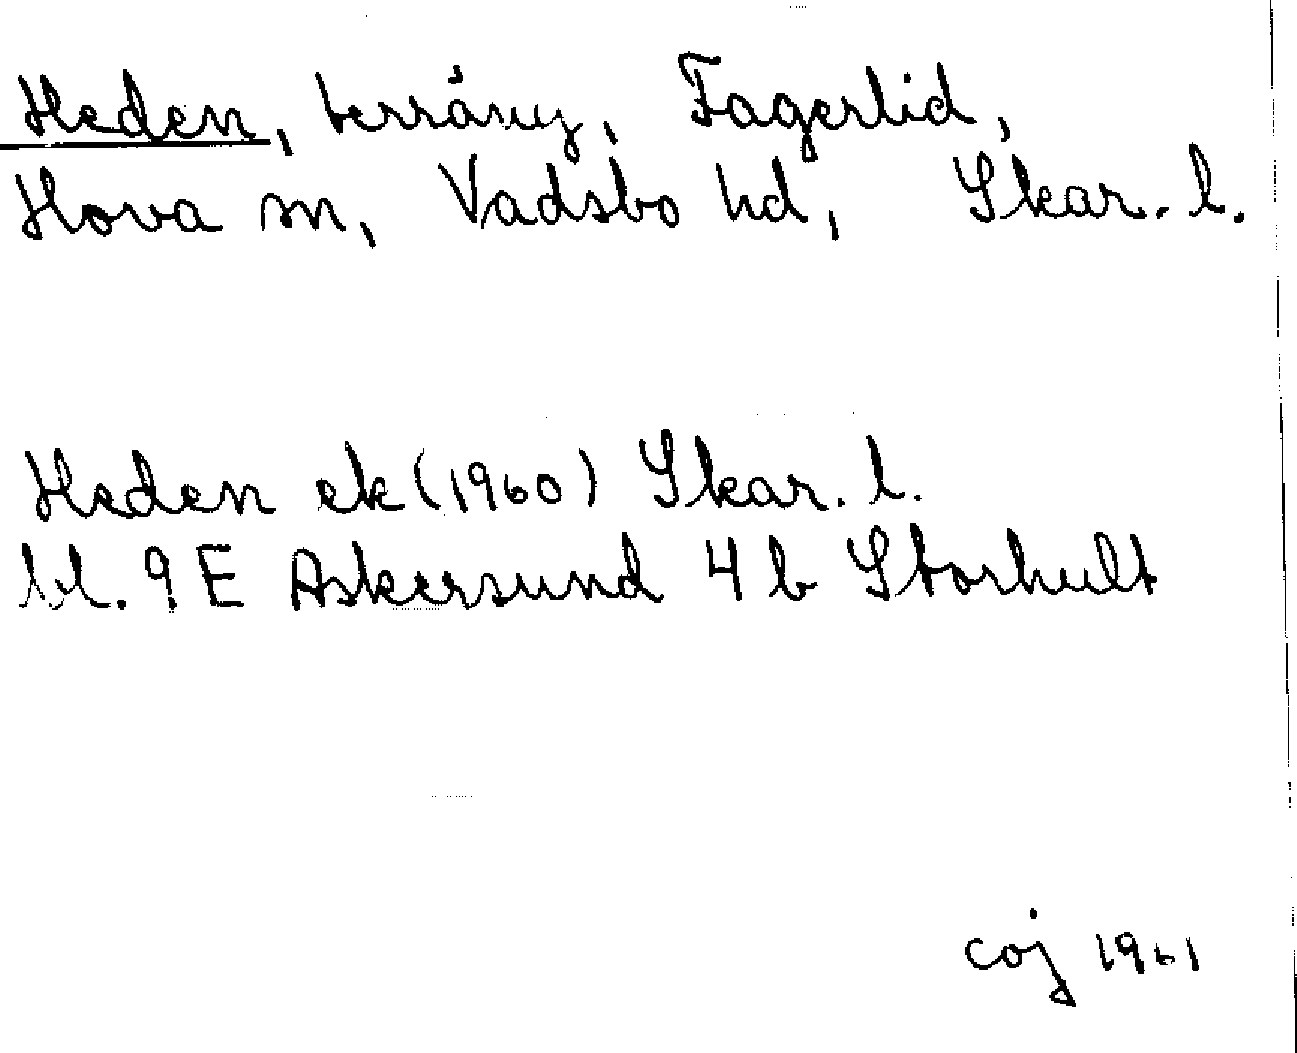 Heden, terräng, Fagerlid,
Hova sn, Vadsbo hd, Skar. l.
Heden ek (1960) Skar. l.
bl. 9 E Askersund 4 b Storhult
coj 1961